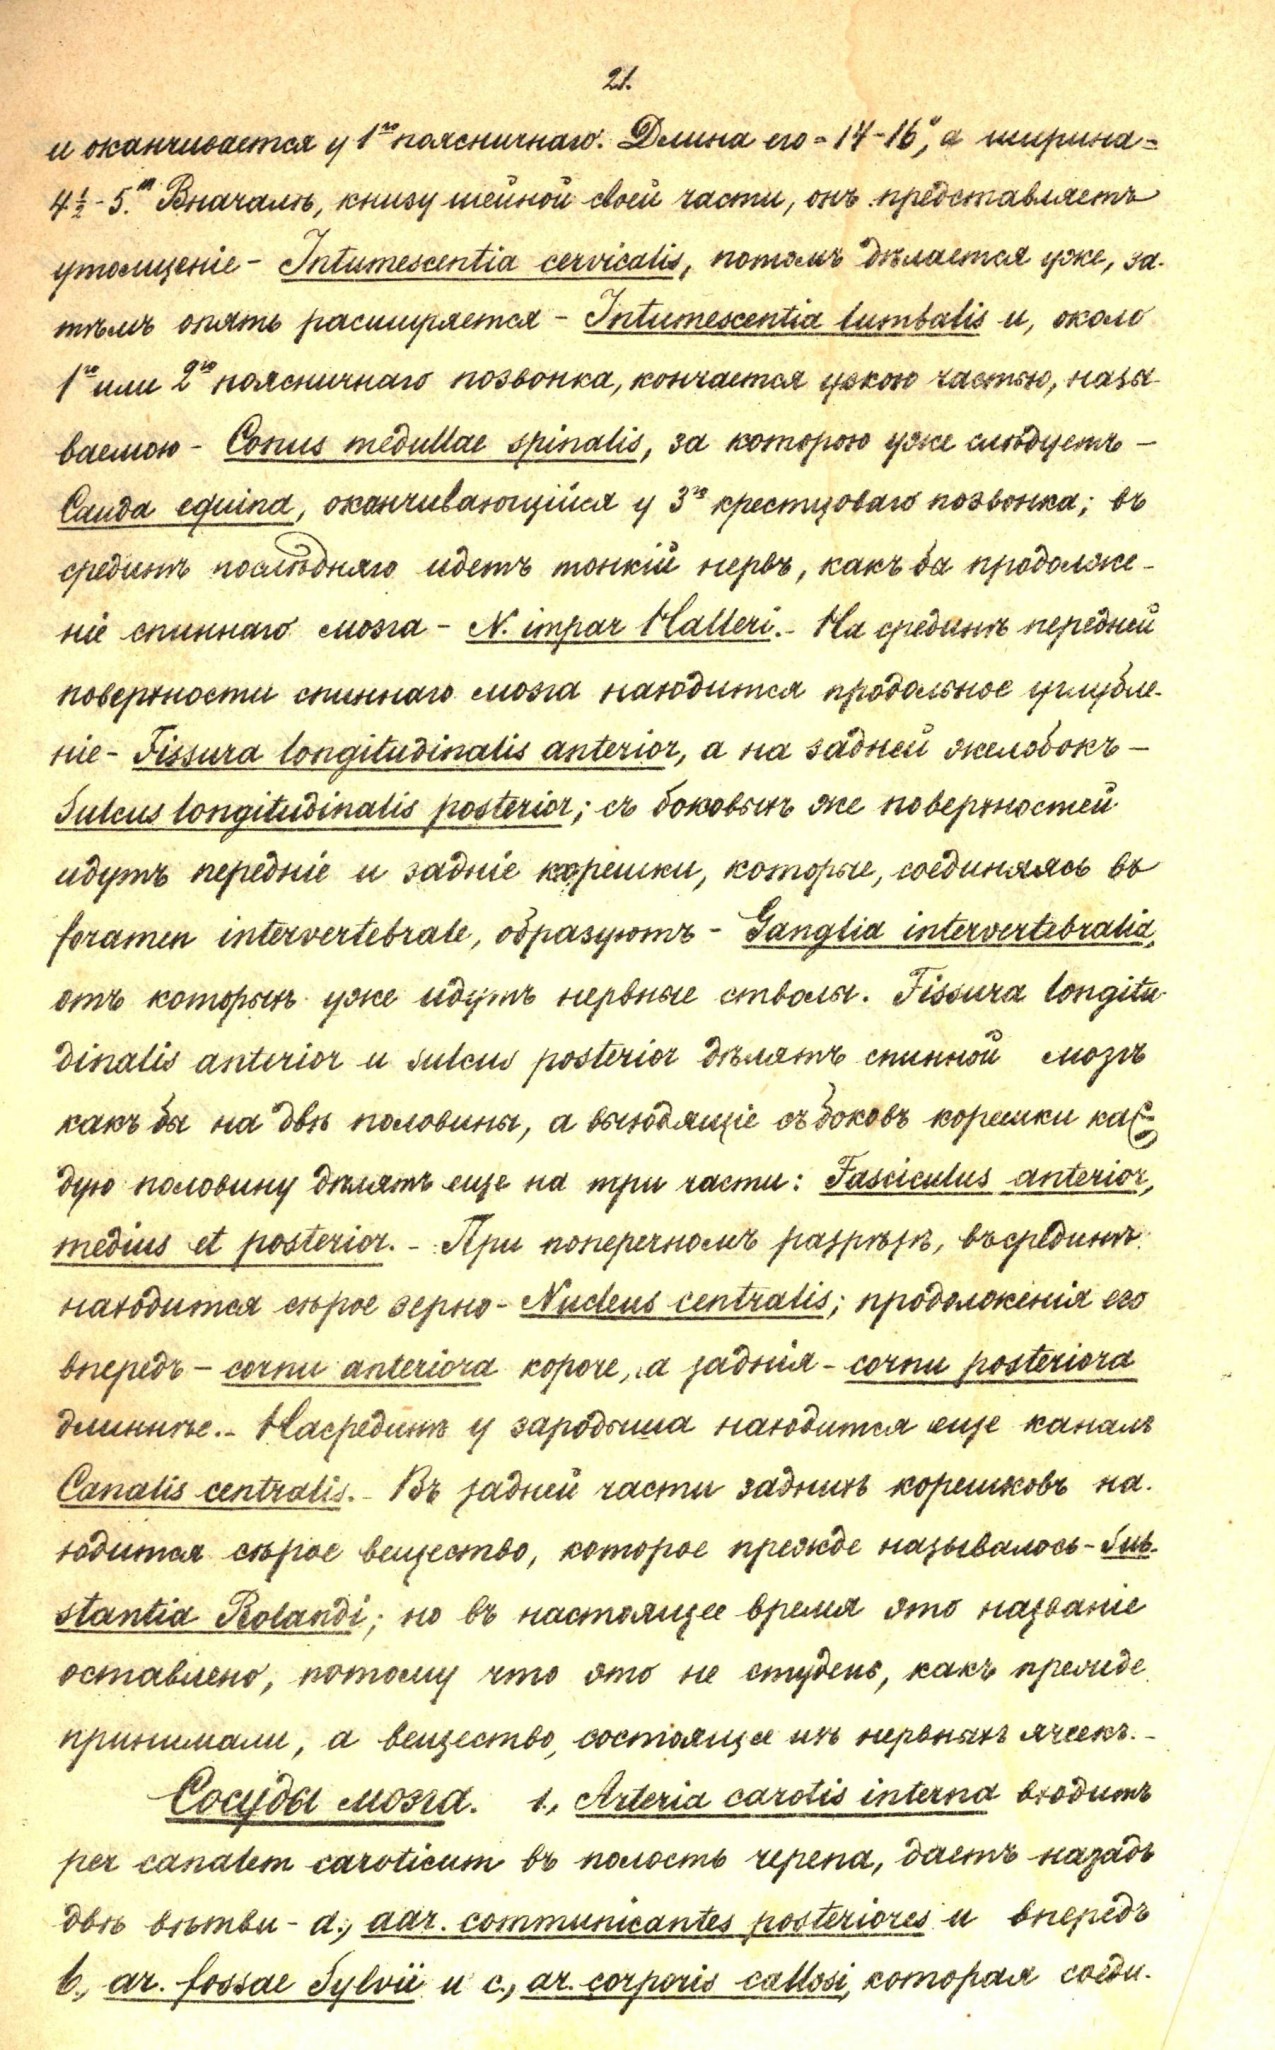 21.
и оканчивается у 1го поясничнаго. Длина его = 14-16", а ширина =
4½-5.''' Вначалѣ, книзу шейной своей части, онъ представляетъ
утолщеніе - Intumescentia cervicalis, потомъ дѣлается уже, за-
тѣмъ опять расширяется - Intumescentia lumbalis и, около
1го или 2го поясничнаго позвонка, кончается узкою частью, назы-
ваемою - Conus medullae spinalis, за которою уже слѣдуетъ -
Cauda equina, оканчивающійся у 3го крестцоваго позвонка; въ
срединѣ послѣдняго идетъ тонкій нервъ, какъ бы продолже-
ніе спиннаго мозга - N. impar Halleri. - На срединѣ передней
поверхности спиннаго мозга находится продольное углубле-
ніе - Fissura longitudinalis anterior, а на задней желобокъ -
Sulcus longitudinalis posterior; съ боковыхъ же поверхностей
идутъ передніе и задніе корешки, которые, соединяясь въ
foramen intervertebrale, образуютъ - Ganglia intervertebralia,
отъ которыхъ уже идутъ нервные стволы. Fissura longitu-
dinalis anterior и sulcus posterior дѣлятъ спинной мозгъ
какъ бы на двѣ половины, а выходящіе съ боковъ корешки каж-
дую половину дѣлятъ еще на три части: Fasciculus anterior,
medius et posterior. - При поперечномъ разрѣзѣ, въ срединѣ
находится сѣрое зерно - Nucleus centralis; продолженія его
впередъ - cornu anteriora короче, а заднія - cornu posteriora
длиннѣе. - Насрединѣ у зародыша находится еще каналъ
Canalis centralis. - Въ задней части заднихъ корешковъ на-
ходится сѣрое вещество, которое прежде называлось - Sub-
stantia Rolandi; но въ настоящее время это названіе
оставлено, потому что это не студень, какъ прежде
принимали, а вещество, состоящее изъ нервныхъ ячеекъ. -
Сосуды мозга. 1., Arteria carotis interna входитъ
per canalem caroticum въ полость черепа, даетъ назадъ
двѣ вѣтви - a., aar. communicantes posteriores и впередъ
b., ar. fossae Sylvii и c., ar. corporis callosi, которая соеди-